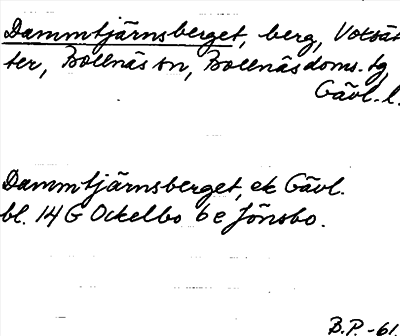 Dammtjärnsberget, berg, Votsät-
ter, Bollnäs sn, Bollnäs doms. tg,
Gävl. l.
Dammtjärnsberget, ek Gävl.
bl. 14 G Ockelbo 6 e Jönsbo.
B.P. -61.